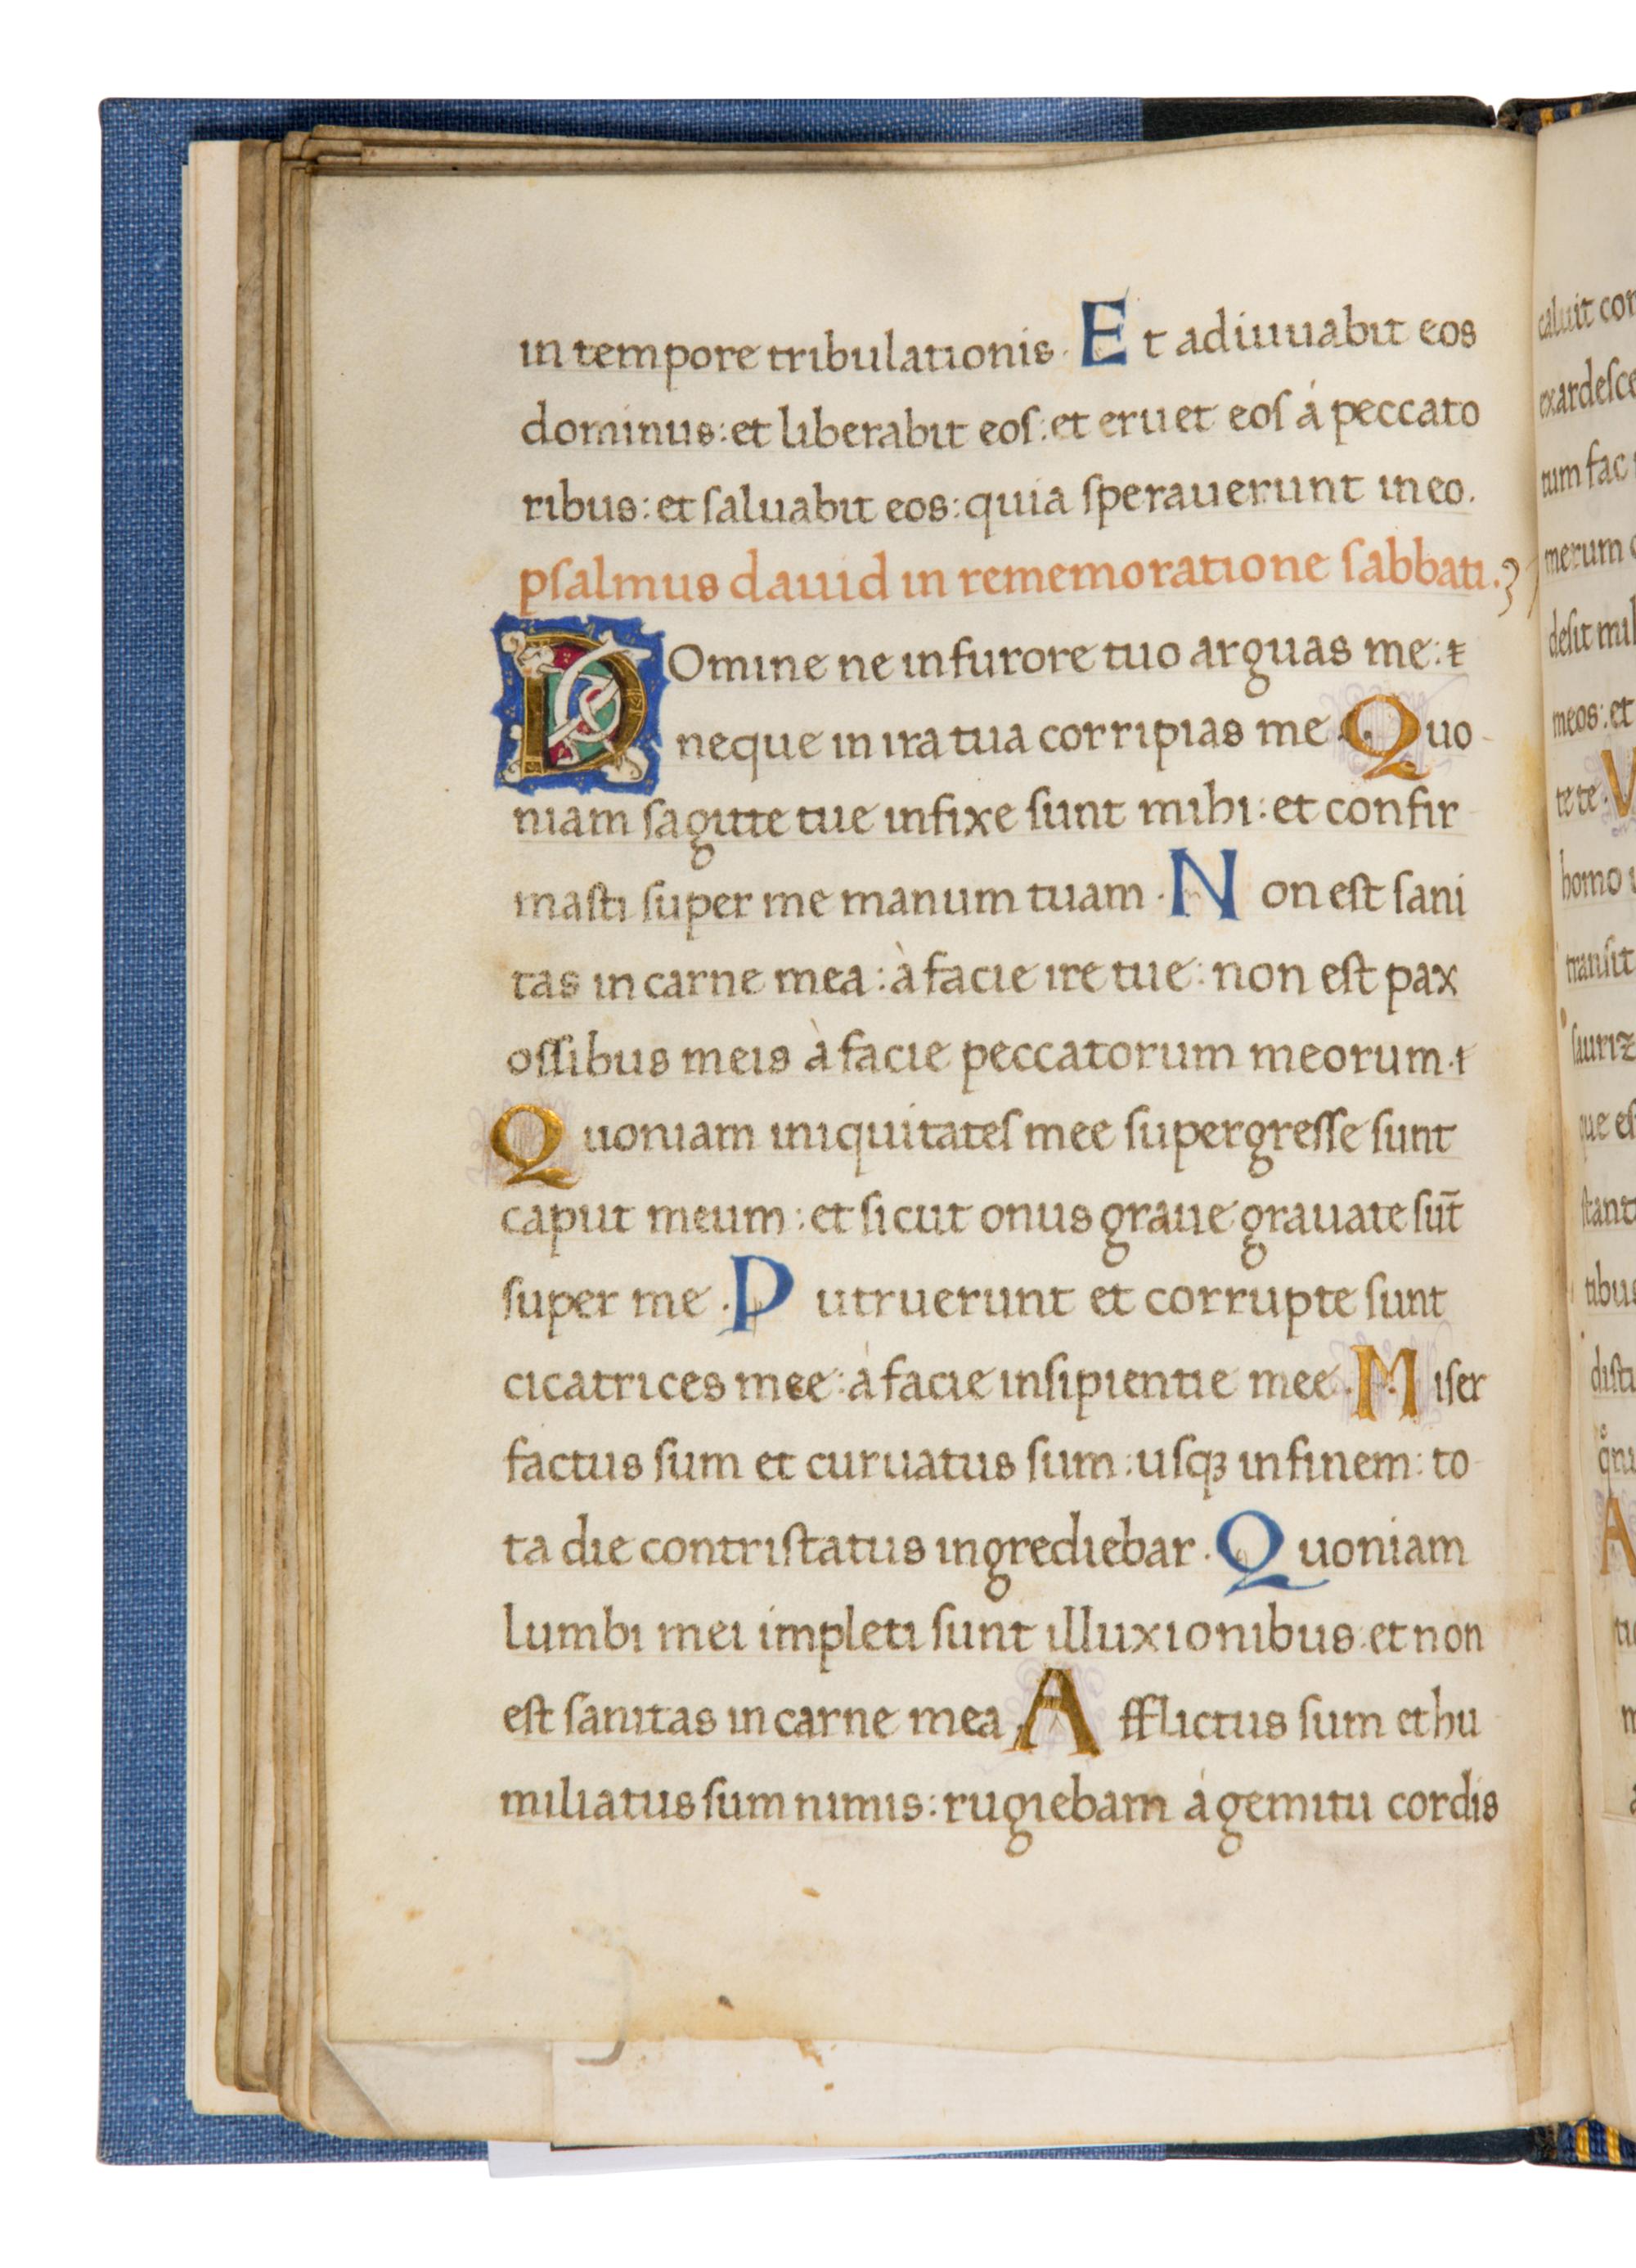 in tempore tribulationis. Et adiuuabit eos
dominus: et liberabit eoſ: et eruet eoſ á peccato
ribus: et ſaluabit eos: quia ſperauerunt in eo.
pſalmus dauid in rememoratione ſabbati.
DOmine ne in furore tuo arguas me:
neque in ira tua corripias me. Quo
niam ſagitte tue infixe ſunt mihi: et confir
maſti ſuper me manum tuam. Non eſt ſani
tas in carne mea: à facie ire tue: non eſt pax
oſſibus meis à facie peccatorum meorum.
Quoniam iniquitateſ mee ſupergreſſe ſunt
caput meum: et ſicut onus graue grauate ſūt
ſuper me. Putruerunt et corrupte ſunt
cicatrices mee: à facie inſipientie mee. Miſer
factus ſum et curuatus ſum: uſqꝫ in finem: to
ta die contriſtatus ingrediebar. Quoniam
lumbi mei impleti ſunt illuxionibus: et non
eſt ſanitas in carne mea. Afflictus ſum et hu
miliatus ſum nimis: rugiebam á gemitu cordis
caluit
exardeſce
tum fac
merum
deſit
meos: et
te te. V
homo
tranſit